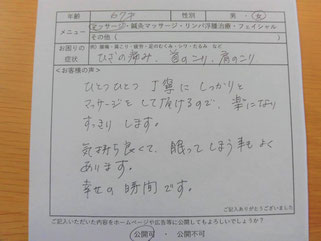 年齢 67才 性別 男・女
メニュー マッサージ・鍼灸マッサージ・リンパ浮腫治療・フェイシャル
その他( )
お困りの症状 例)腰痛・肩こり・疲労・足のむくみ・シワ・たるみ など
ひざの痛み、首のこり、肩のこり
<お客様の声>
ひとつひとつ丁寧に しっかりと
マッサージをして頂けるので、楽になり
すっきりします。
気持ち良くて、眠ってしまう事もよく
あります。
幸せの時間です。
ご記入ありがとうございました
ご記入いただいた内容をホームページや広告等に公開してもよろしいでしょうか?
公開可 ・ 公開不可